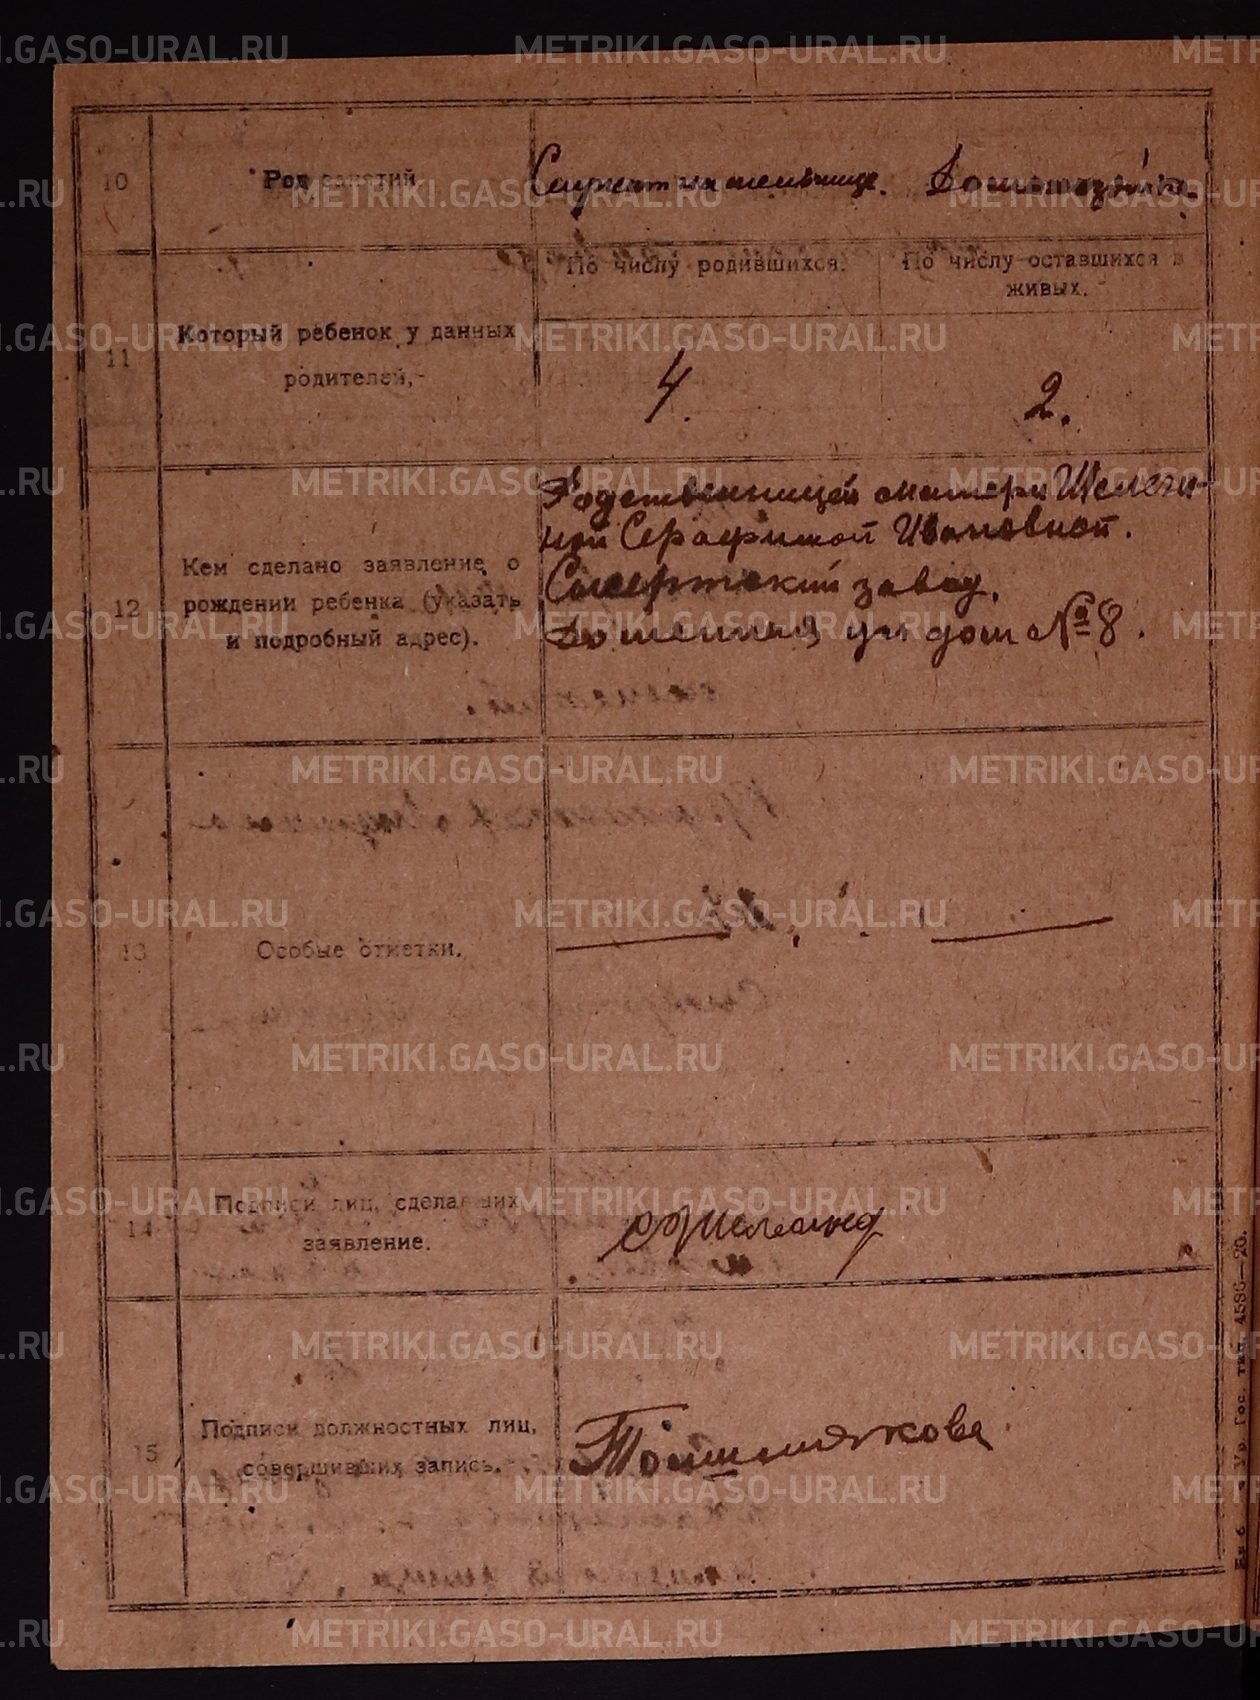 METRIKI.GASO-URAL.RU
10
Род занятий
Служит на мельнице. Домохозяйка.
11
Который ребенок у данных
родителей,
По числу родившихся.
4.
По числу оставшихся в
живых.
2.
12
Кем сделано заявление о
рождении ребенка (указать
и подробный адрес).
Родственницей матери Шелеги-
ной Серафимой Ивановной.
Сысертский завод,
Доменная ул дом №8.
13
Особые отметки.
14
Подписи лиц, сделавших
заявление.
15
Подписи должностных лиц,
совершивших запись.
Гос. тип. 4596—20.